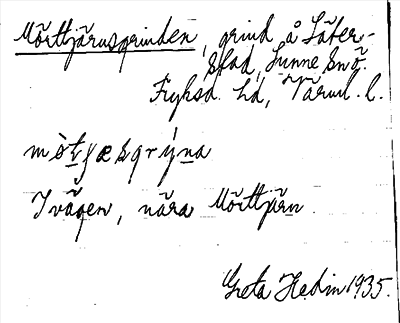 Mörttjärnsgrinden, grind å Säter-
stad, Sunne Snö.
Fryksd. hd, Värml. l.
I vägen, nära Mörttjärn.
Greta Hedin 1935.